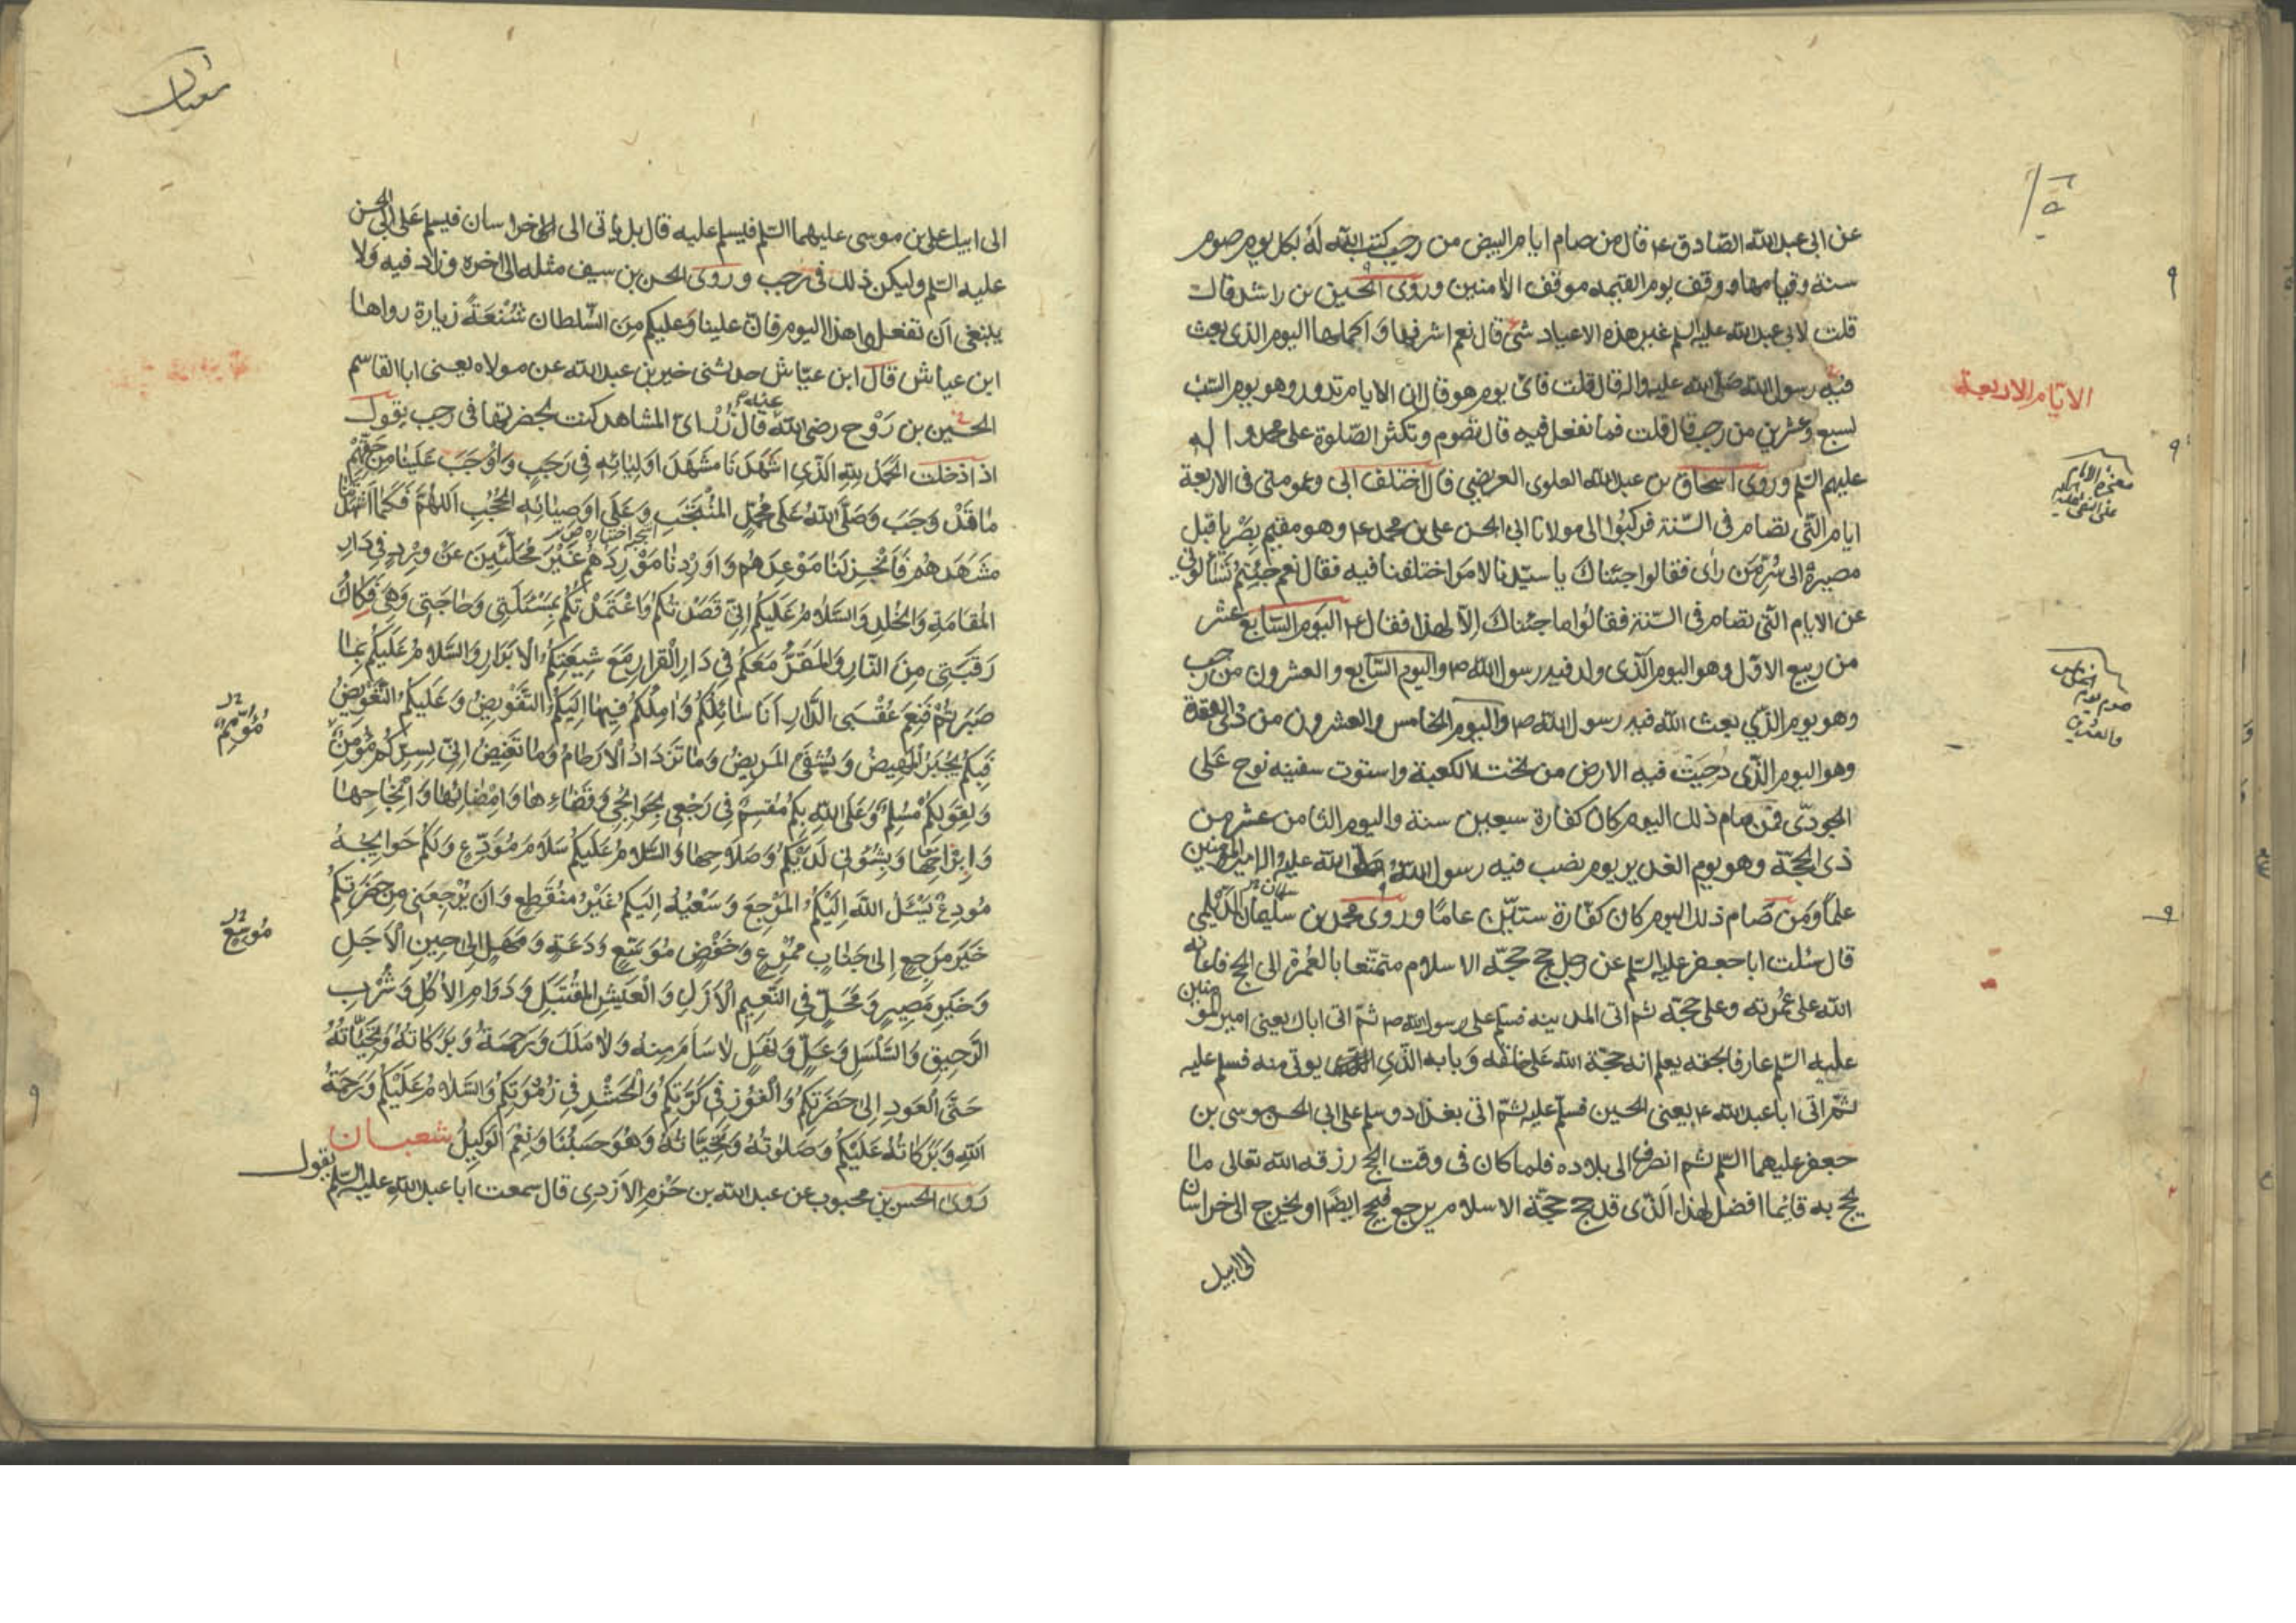 عن ابی عبد الله الصّادق ع قال من صام ایام البیض من رجب کتب الله له بکل یوم صوم
سنة وقیامها ووقف یوم القیمة موقف الآمنین وروی الحسین بن راشد قال
قلت لابی عبد الله علیه السلم غیر هذه الاعیاد شئ قال نعم اشرفها واکملها الیوم الذی بعث
فیه رسول الله صلّی الله علیه واله قال قلت فایّ یوم هو قال ان الایام تدور وهو یوم السّبت
لسبع وعشرین من رجب قال قلت فما نفعل فیه قال تصوم وتکثر الصّلوة علی محمد واله
علیهم السّلم وروی اسحاق بن عبد الله العلوی العریضی قال اختلف ابی وعمومتی فی الاربعة
ایام الّتی تصام فی السّنة فرکبوا الی مولانا ابی الحسن علی بن محمد ع وهو مقیم بصریا قبل
مصیره الی سُرّ مَن رأی فقالوا جئناک یا سیّدنا لامر اختلفنا فیه فقال نعم جئتم تسألونی
عن الایام الّتی تصام فی السّنة فقالوا ما جئناک الّا لهذا فقال ع الیوم السّابع عشر
من ربیع الاوّل وهو الیوم الّذی ولد فیه رسول الله ص والیوم السّابع والعشرون من رجب
وهو یوم الذّی بعث الله فیه رسول الله ص والیوم الخامس والعشرون من ذی القعدة
وهو الیوم الذّی دُحِیَت فیه الارض من تحت الکعبة واستوت سفینه نوح عَلَی
الجودّی فمن صام ذلک الیوم کان کفارة سبعین سنة والیوم الثامن عشر من
ذی الحجّة وهو یوم الغدیر یوم نصب فیه رسول الله صلی الله علیه واله امیر المؤمنین
علماً ومَن صَام ذلک الیوم کان کفّارة ستّین عامًا وروی محمد بن سلیمان الدّیلمی
قال سئلت ابا جعفر علیه السّلم عن رجل حج حجّة الاسلام متمتّعا بالعُمرة الی الحج فاعانه
الله علی عُمرته وعلی حجّه ثم اتی المدینه فسلّم علی رسول الله ص ثمّ اتی اباک یعنی امیر المؤمنین
علیه السّلم عارفا بحقه یعلم انه حجّة الله علی خلقه وبابه الذّی یوتی منه فسلم علیه
ثمّ اتی ابا عبد الله ع یعنی الحسین فسلّم علیه ثمّ اتی بغداد وسلم علی ابی الحسن موسی بن
جعفر علیهما السّلم ثم انصرف الی بلاده فلما کان فی وقت الحج رزقه الله تعالی ما
یحج به فایّما افضل لهذا الّذی قد حج حجّة الاسلام یرجع فیحج ایضًا او یخرج الی خراسان
الی ابیک
الایّام الاربعة
شعبان
الی ابیک علی بن موسی علیهما السّلم فیسلم علیه قال بل یاتی الی خراسان فیسلم عَلی ابی الحسن
علیه السّلم ولیکن ذلک فی رجب وروی الحسن بن سیف مثله الی اخره وزاد فیه ولا
ینبغی اَن تفعلوا هذا الیوم فانّ علینا وعلیکم مِنَ السّلطان شُنعَةً زیارة رواها
ابن عیاش قال ابن عیّاش حدثنی خیر بن عبد الله عن مولاه یعنی ابا القاسم
الحسین بن رَوْح رضی الله عنه قال زُر ایّ المشاهد کنت بحضرتها فی رجب یقول
اذا دخلت الحَمدُ للّهِ الّذی اشهَدَنا مَشهَدَ اولِیائِه فِی رَجَبٍ وَاَوْجَبَ عَلَیْنا مِن حَقِّهِم
مٰا قَدْ وَجَبَ وَصَلَّی اللهُ عَلی مُحَمَّدٍ المُنْتَجَبِ وَعَلَی اَوصِیٰائِهِ الحُجُبِ اَللّهُمَّ فَکَمٰا اَشْهَدْتَنا
مَشهَدَهُم فَاَنْجِز لَنٰا مَوْعِدَهُم وَاَوْرِدْنٰا مَوْرِدَهُم غَیْرَ مُحَلَّئِینَ عَنْ وِرْدٍ فی دَارِ
المُقٰامَةِ وَالخُلدِ وَالسَّلٰامُ عَلَیکُم اِنّی قَصَدْتُکُم وَاعْتَمَدْتُکُم بِمَسْئَلَتی وَحٰاجَتی وَهِیَ فَکٰاکُ
رَقَبَتی مِنَ النّارِ وَالمَقَرُّ مَعَکُم فی دَارِ القَرارِ مَعَ شِیعَتِکُم الاَبْرَارِ وَالسَّلامُ عَلَیکُم بِمٰا
صَبَرتُم فَنِعمَ عُقْبَی الدّارِ اَنَا سٰائِلُکُم وَاٰمِلُکُم فِیمٰا اِلَیکُم التَّفْوِیضُ وَعَلَیکُم التَّعْوِیضُ
فَبِکُم یُجْبَرُ المَهِیضُ وَیُشْفَی المَرِیضُ وَمٰا تَزْدَادُ الاَرْحٰامُ وَمٰا تَغِیضُ اِنّی بِسِرِّکُم مُؤْمِنٌ
وَلِقَولِکُم مُسَلِّمٌ وَعَلَی اللّهِ بِکُم مُقسِمٌ فِی رَجْعِی بِحَوَائِجِی وَقَضٰاءِهٰا وَاِمْضٰائِهٰا وَاِنْجٰاحِهٰا
وَاِبْرَاحِهٰا وَبِشُؤُنی لَدَیکُم وَصَلاحِهٰا وَالسَّلامُ عَلَیکُم سَلامَ مُوَدِّعٍ وَلَکُم حَوَایِجَهُ
مُودِعٌ یَسْئَلُ اللّهَ اِلَیْکُم المَرْجِعَ وَسَعْیُهُ اِلَیکُم غَیْرَ مُنْقَطِعٍ وَاَن یَرْجِعَنِی مِن حَضْرَتِکُم
خَیرَ مَرجِعٍ اِلیٰ جَنٰابٍ مُمْرِعٍ وَخَفْضٍ مُوَسَّعٍ وَدَعَةٍ وَمَهَلٍ اِلیٰ حِینِ الاَجَلِ
وَخَیرِ مَصِیرٍ وَمَحَلٍّ فِی النَّعِیمِ الاَزَلِ وَالعَیْشِ المُقْتَبَلِ وَدَوَامِ الاُکُلِ وَشُرْبِ
الرَّحِیقِ وَالسَّلْسَلِ وَعَلٍّ وَنَهَلٍ لٰا سَأَمَ مِنهُ وَلٰا مَلَلَ وَرَحْمَةُ وَبَرَکَاتُهُ وَتَحِیَّاتُهُ
حَتَّی العَودِ اِلیٰ حَضْرَتِکُم وَالفَوْزِ فِی کَرَّتِکُم وَالحَشْرِ فِی زُمْرَتِکُم وَالسَّلٰامُ عَلَیْکُم وَرَحمَةُ
اللّهِ وَبَرَکَاتُهُ عَلَیکُم وَصَلَوٰتُهُ وَتَحِیَّاتُهُ وَهُوَ حَسبُنَا وَنِعمَ الوَکِیلُ شعبان
رَوی الحسن بن محبوب عن عبد الله بن حَزم الازدی قال سمعت ابا عبد الله علیه السّلم یقول
مُؤمِنٌ
مُوسَّعٍ